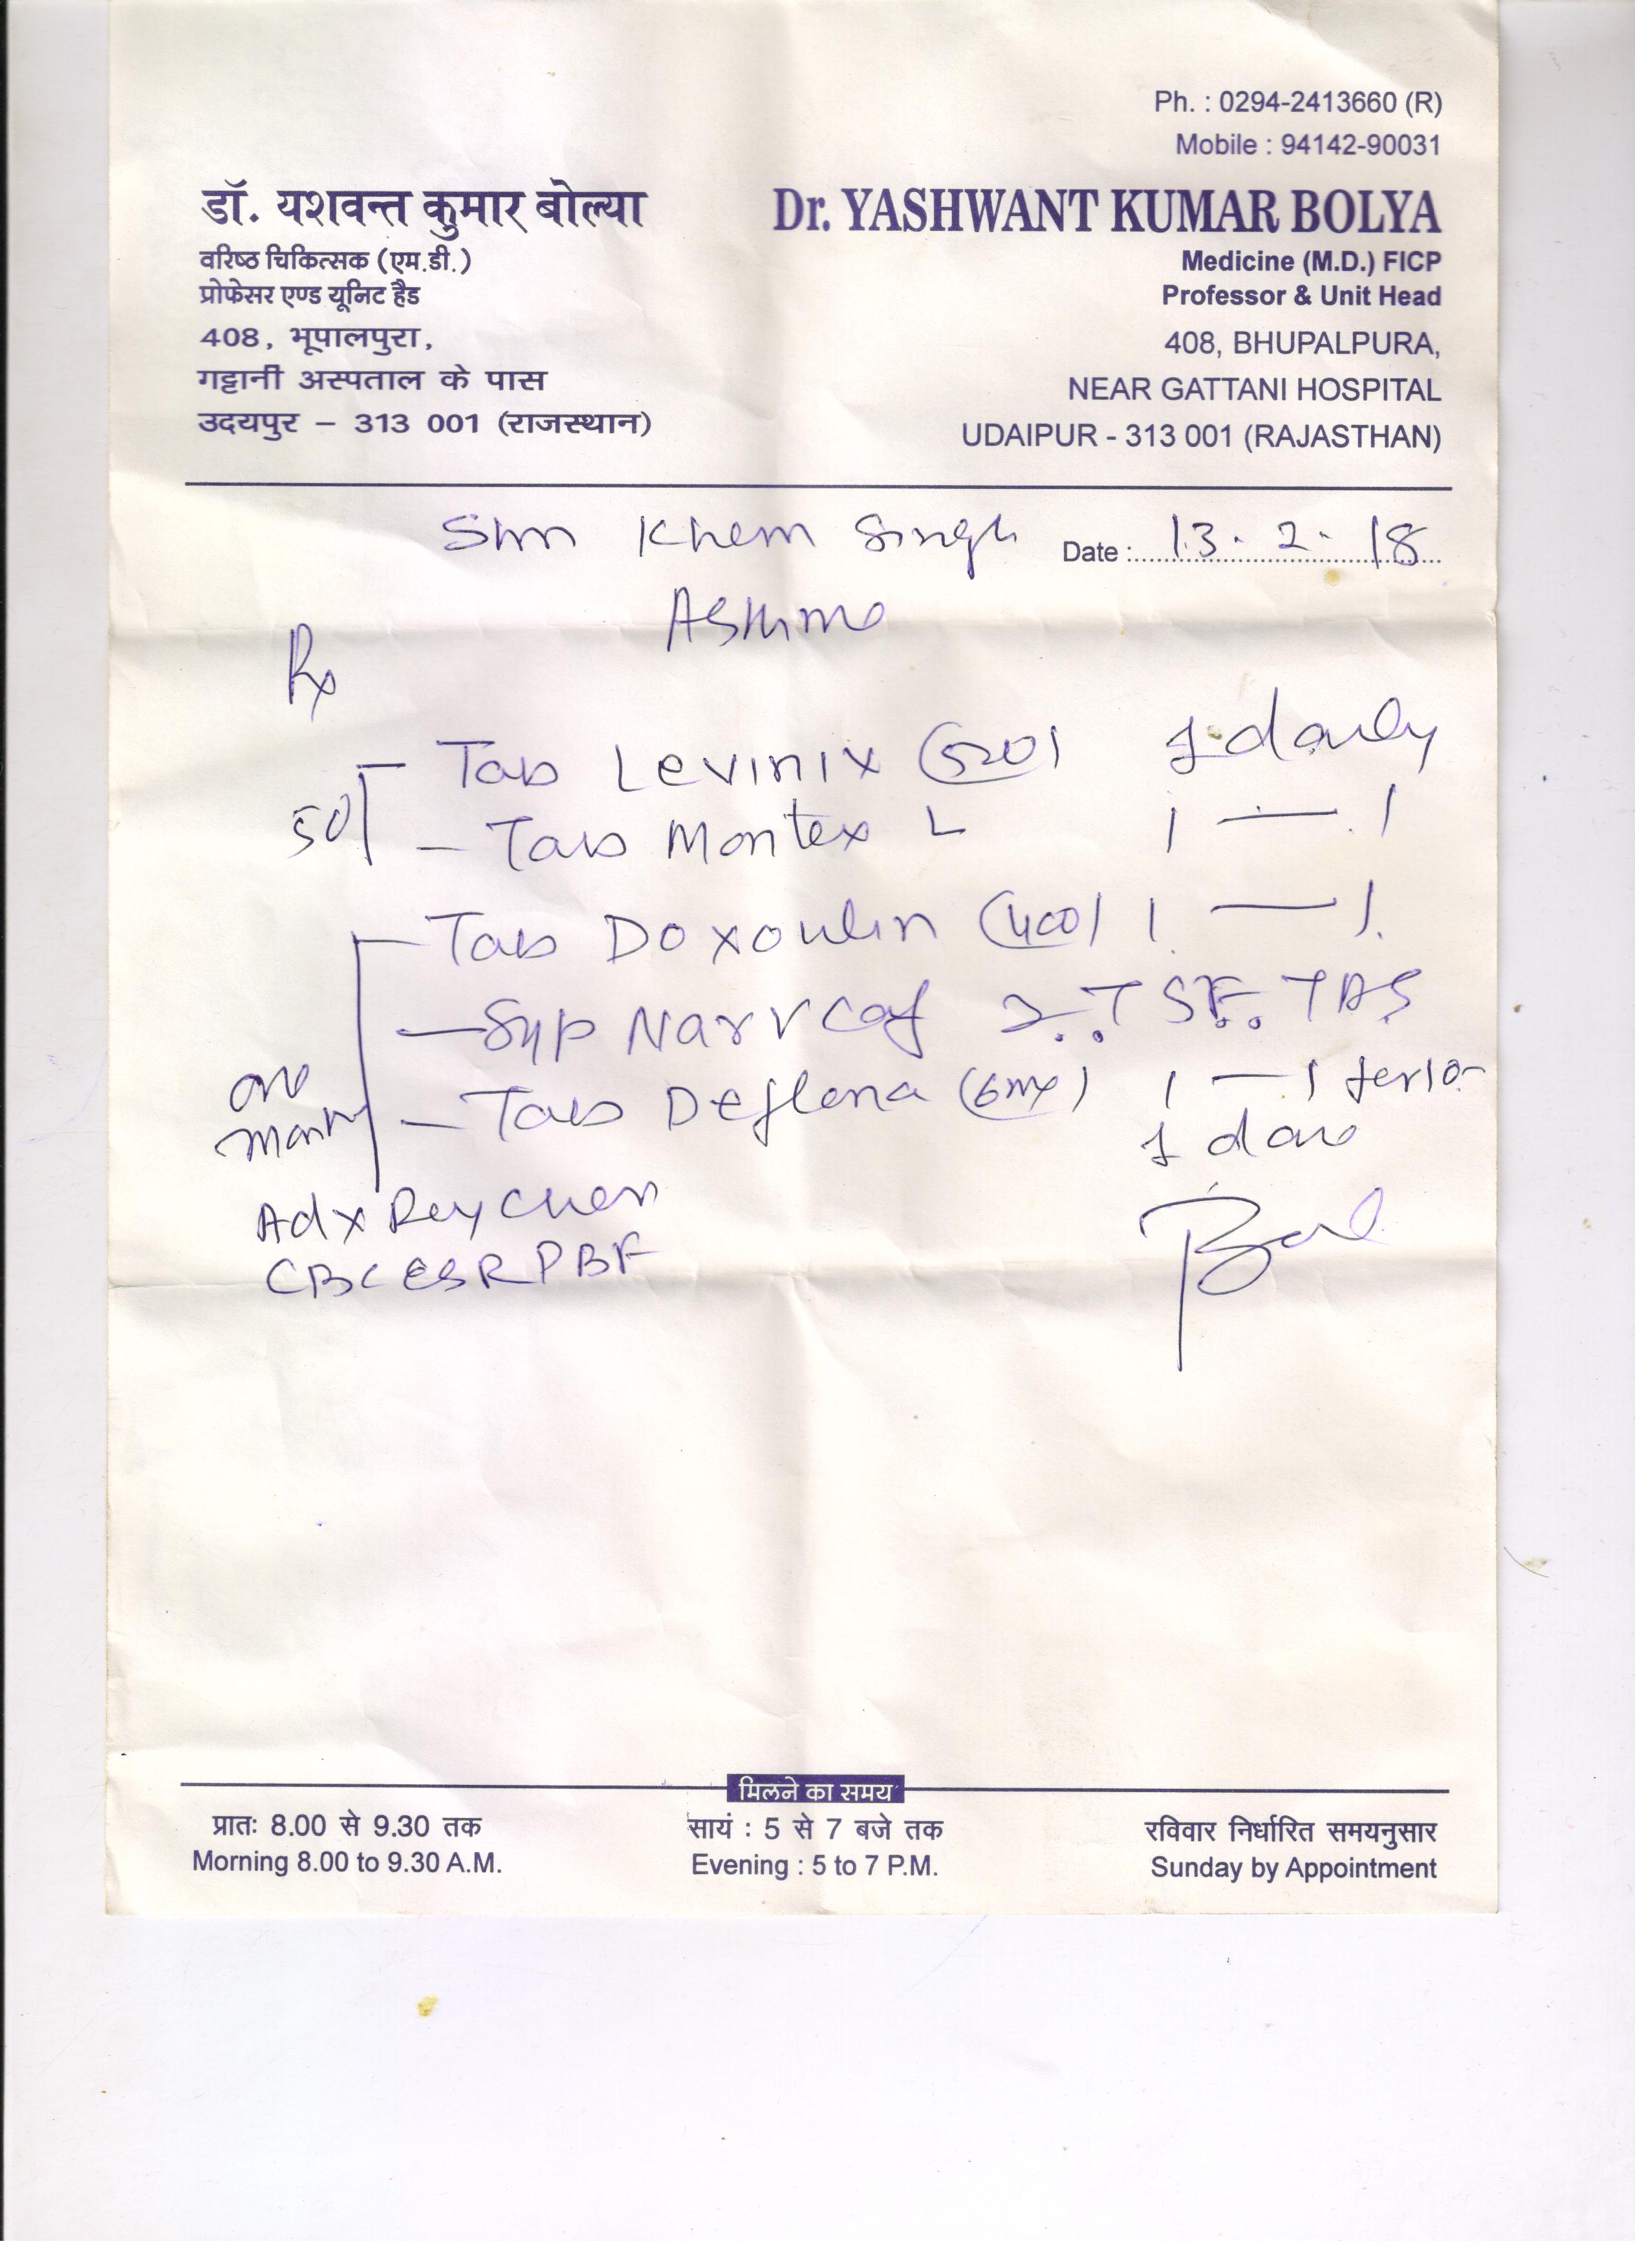 Ph. : 0294-2413660 (R)
Mobile : 94142-90031
डॉ. यशवन्त कुमार बोल्या
वरिष्ठ चिकित्सक (एम.डी.)
प्रोफेसर एण्ड यूनिट हैड
408, भूपालपुरा,
गट्टानी अस्पताल के पास
उदयपुर – 313 001 (राजस्थान)
Dr. YASHWANT KUMAR BOLYA
Medicine (M.D.) FICP
Professor & Unit Head
408, BHUPALPURA,
NEAR GATTANI HOSPITAL
UDAIPUR - 313 001 (RAJASTHAN)
Khem Singh Date : 13. 2. 18
Asthma
Rx
Tab Levinix 1 daily
Tab Montex L 1 — 1
Tab (400) 1 — 1
Syp 2. T SF. TDS
one month
Tab (6mg) 1 — 1
1
CBC ESR PBF
मिलने का समय
प्रातः 8.00 से 9.30 तक
Morning 8.00 to 9.30 A.M.
सायं : 5 से 7 बजे तक
Evening : 5 to 7 P.M.
रविवार निर्धारित समयनुसार
Sunday by Appointment